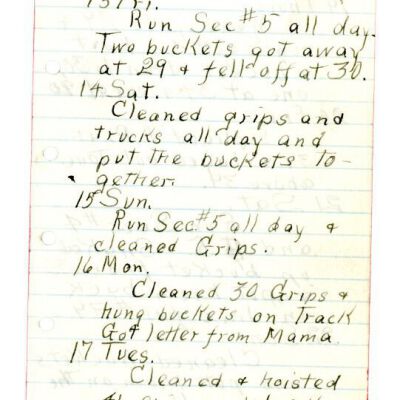 13 Fri.
Run Sec #5 all day.
Two buckets got away
at 29 & fell off at 30.
14 Sat.
Cleaned grips and
trucks all day and
put the buckets to-
gether.
15 Sun.
Run Sec. #5 all day &
cleaned Grips.
16 Mon.
Cleaned 30 Grips &
hung buckets on Track
Got letter from Mama
17 Tues.
Cleaned & hoisted